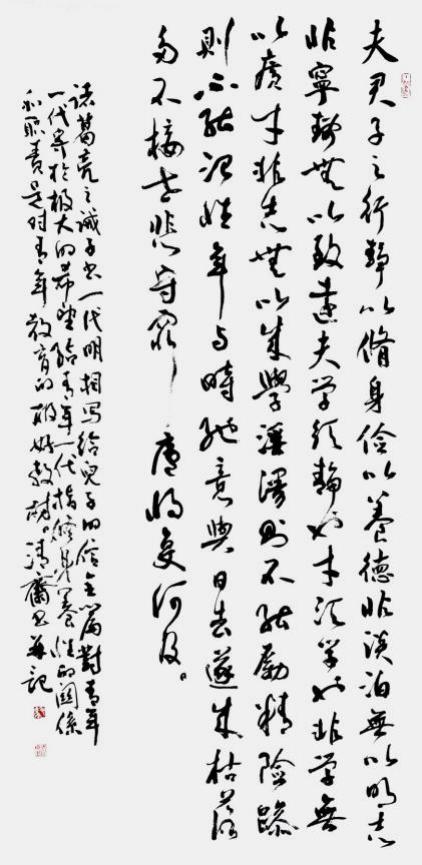 夫君子之行静以脩身俭以养德非淡泊無以明志
非寧静無以致遠夫学须静也才须学也非学無
以广才非志無以成學淫漫则不能励精險躁
则不能治性年与時驰意與日去遂成枯落
多不接世悲守窮庐将复何及。
诸葛亮之诫子书一代明相写给兒子的信全篇對青年
一代寄於极大的希望给青年一代指修身养性的関係
和职责是对青年教育的极好教材。清 书並記